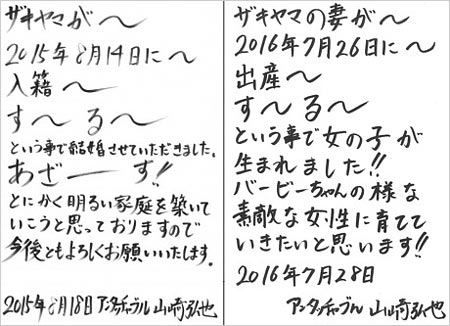 ザキヤマが〜
2015年8月14日に〜
入籍〜
す〜る〜
という事で結婚させていただきました。
あざーーす!!
とにかく明るい家庭を築いて
いこうと思っておりますので
今後ともよろしくお願いいたします。
2015年8月18日 アンタッチャブル 山崎弘也
ザキヤマの妻が〜
2016年7月26日に〜
出産〜
す〜る〜
という事で女の子が
生まれました!!
バービーちゃんの様な
素敵な女性に育てて
いきたいと思います!!
2016年7月28日
アンタッチャブル 山崎弘也